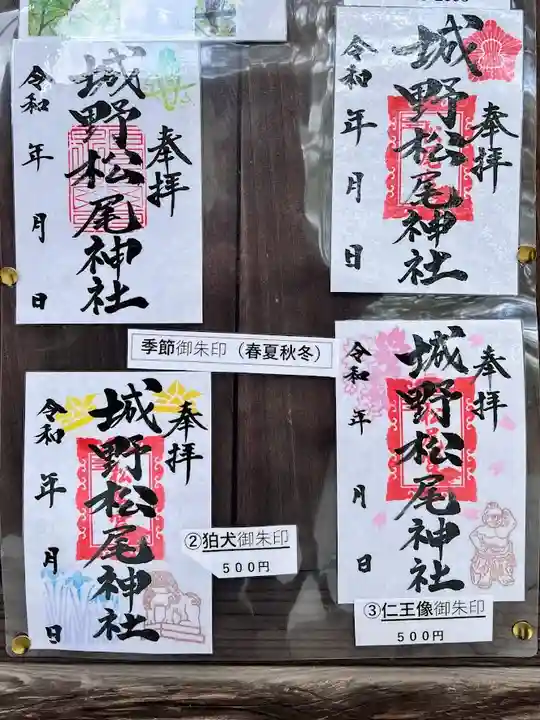 奉拝
城野松尾神社
令和 年 月 日
奉拝
城野松尾神社
令和 年 月 日
季節御朱印（春夏秋冬）
奉拝
城野松尾神社
令和 年 月 日
②狛犬御朱印
500円
奉拝
城野松尾神社
令和 年 月 日
③仁王像御朱印
500円